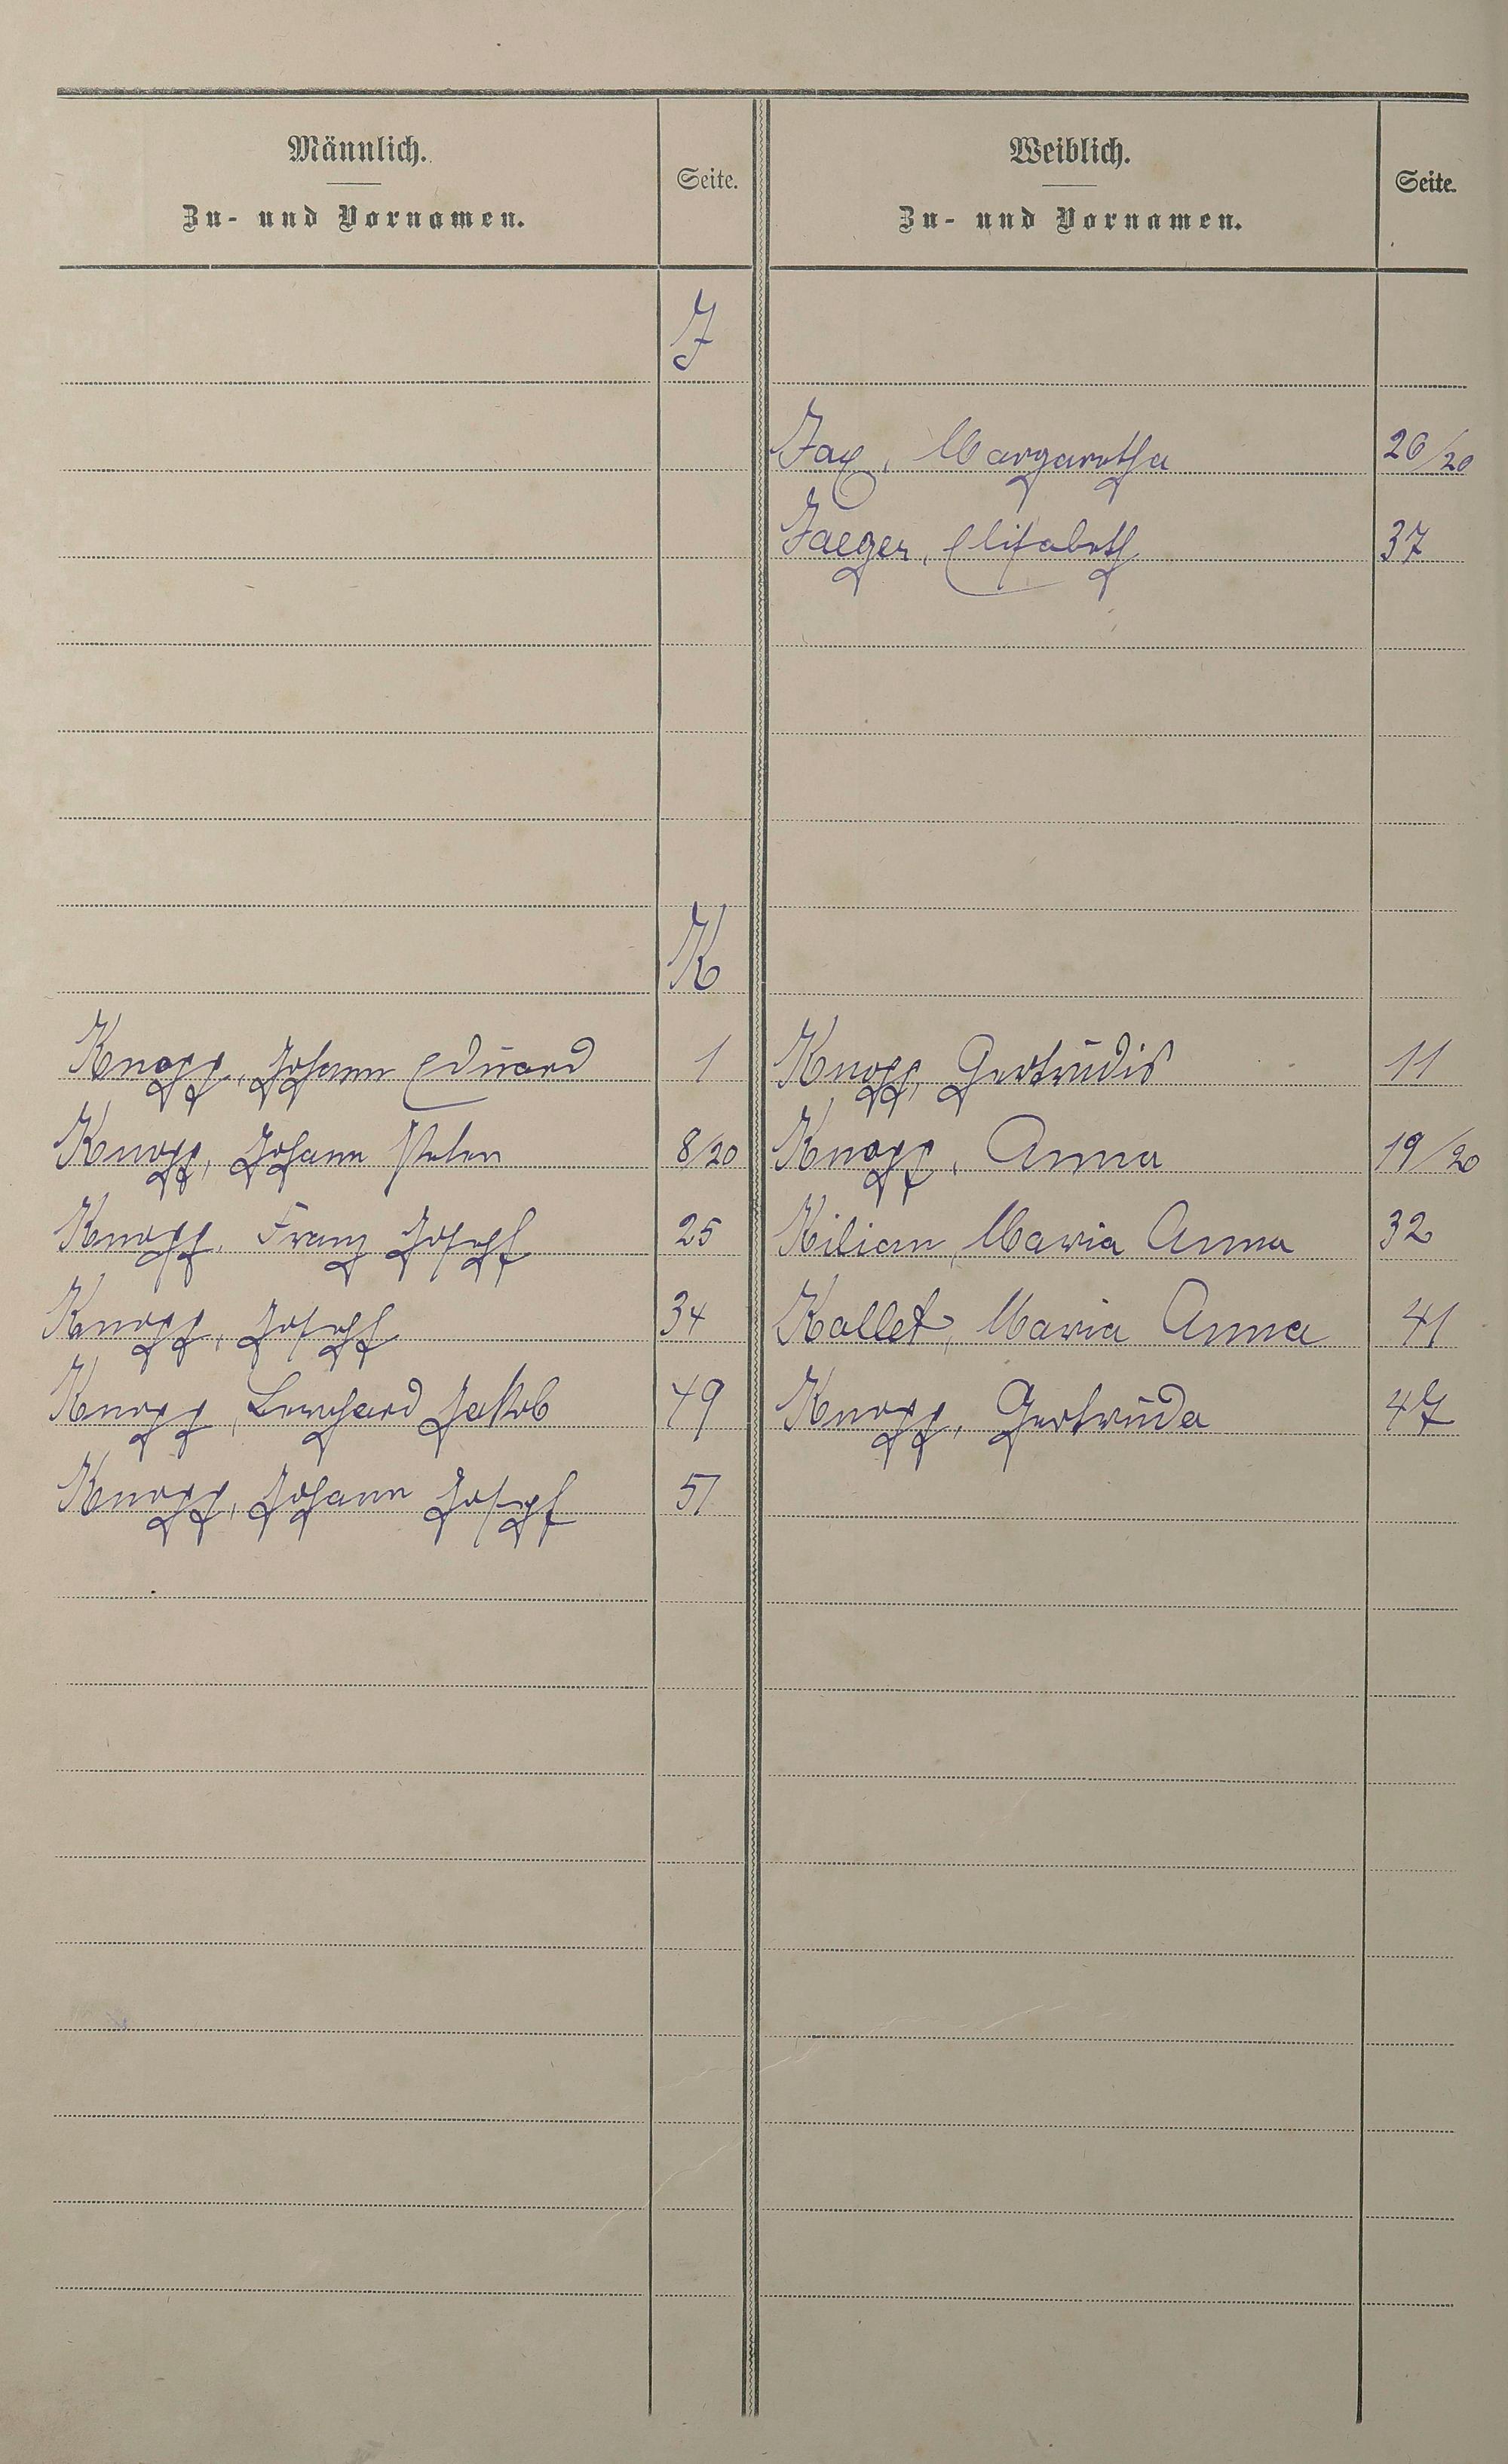 Männlich. Weiblich.
Seite. Seite.
Zu- und Vornamen. Zu- und Vornamen.
J
Jax, Margaretha 20/20
Jaeger, Elisabeth 37
K
Knopp, Johann Eduard 1 Knopp, Gertrudis 11
Knopp, Johann Peter 8/20 Knopp, Anna 19/20
Knopp, Franz Joseph 25 Kilian, Maria Anna 32
Knopp, Joseph 34 Kallet, Maria Anna 41
Knopp, Bernhard Jakob 49 Knopp, Gertruda 47
Knopp, Johann Joseph 51